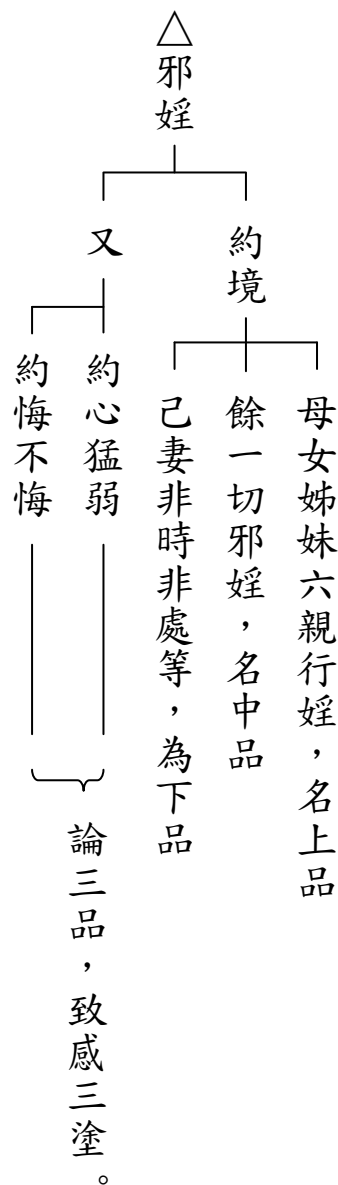 △邪婬
約境
母女姊妹六親行婬，名上品
餘一切邪婬，名中品
己妻非時非處等，為下品
又
約心猛弱
約悔不悔
論三品，致感三塗。